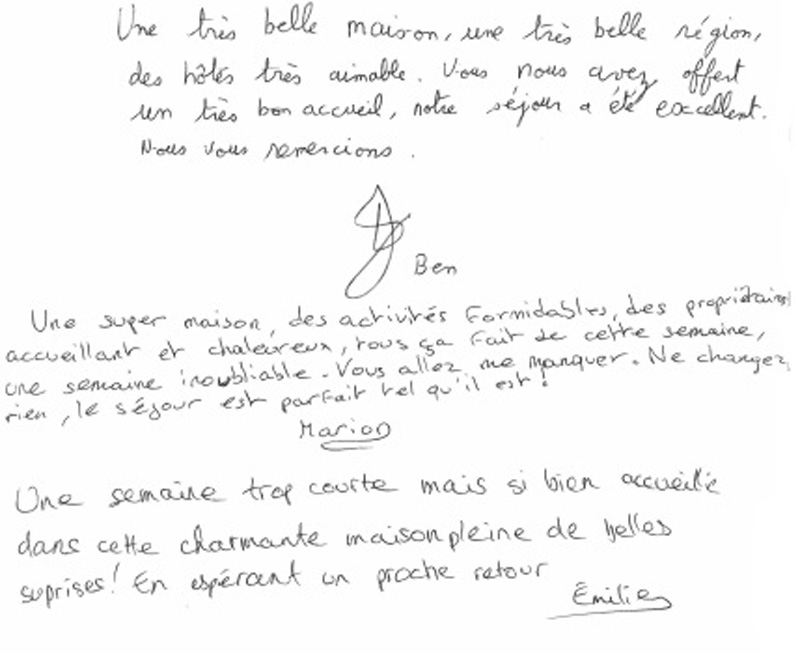 Une très belle maison, une très belle région,
des hôtés très aimable. Vous nous avez offert
un très bon accueil, notre séjour a été excellent.
Nous vous remercions.
Ben
Une super maison, des activités formidables, des propriétaires
accueillant et chaleureux, tous ça fait de cette semaine,
une semaine inoubliable. Vous allez me manquer. Ne changez
rien, le séjour est parfait tel qu'il est !
Marion
Une semaine trop courte mais si bien accueillie
dans cette charmante maison pleine de belles
suprises! En espérant un proche retour
Émilie